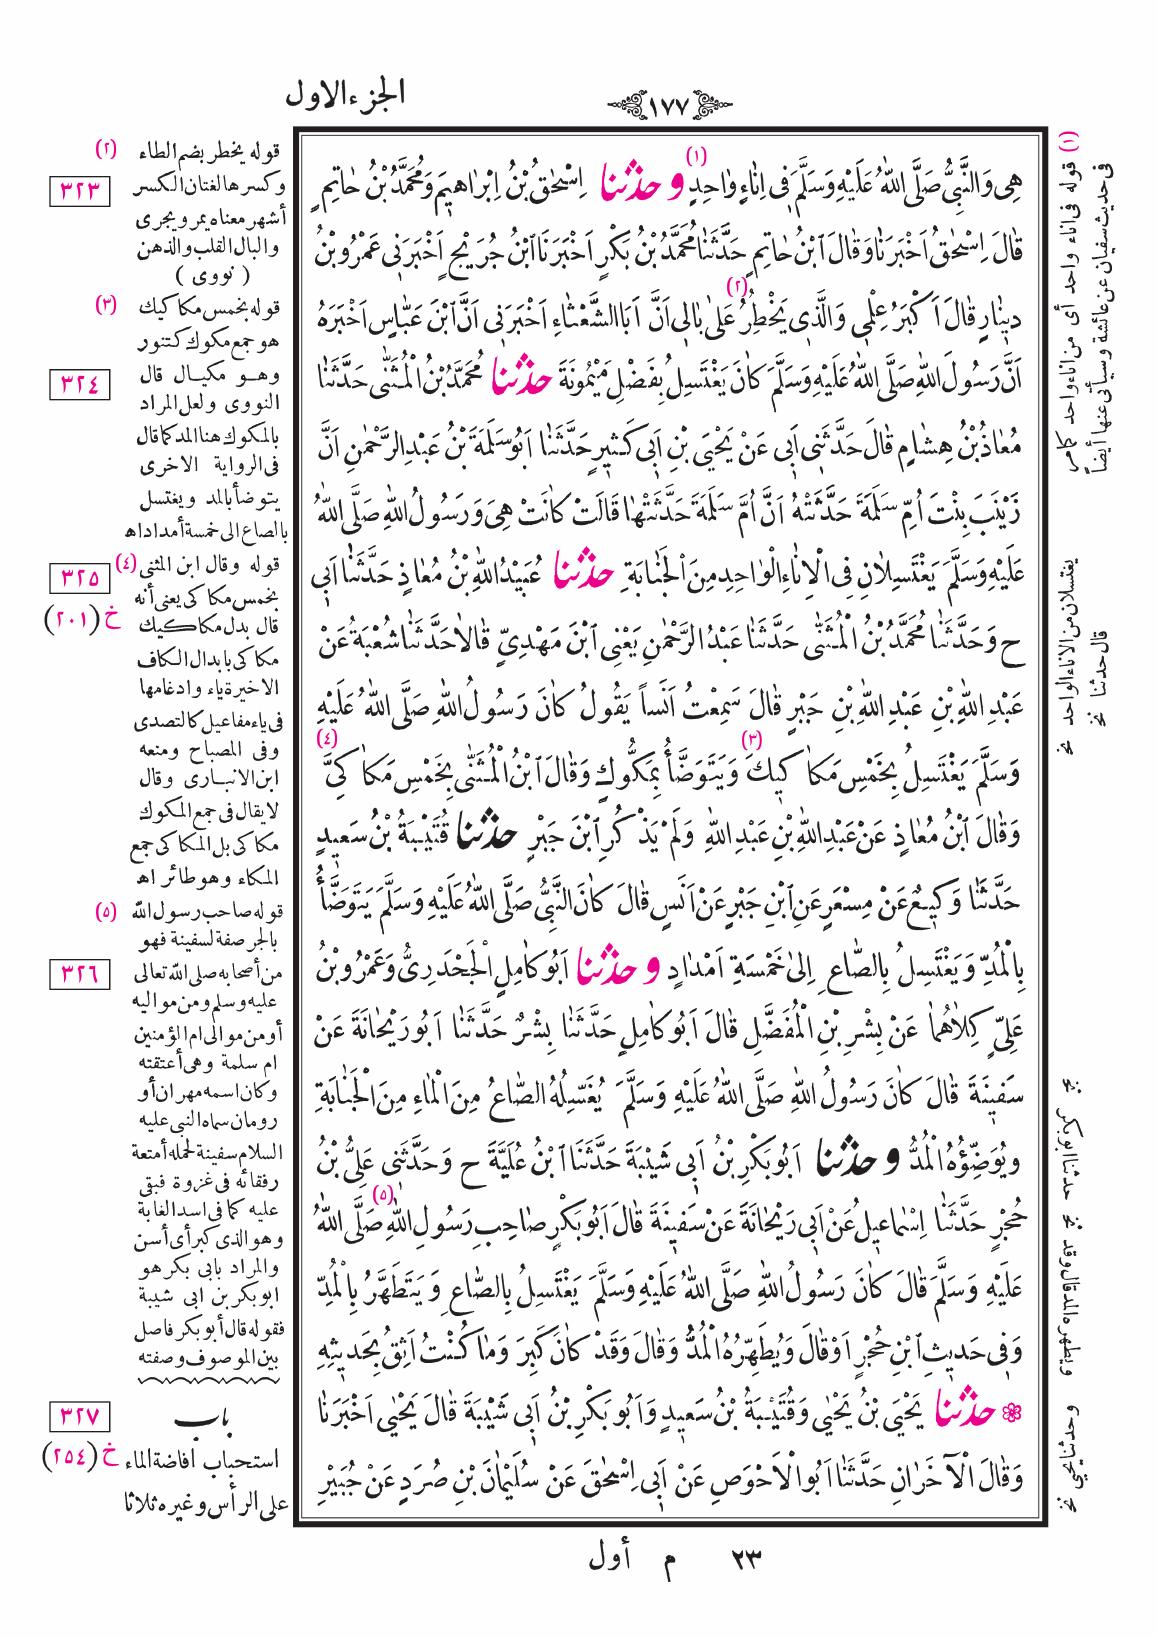 الجزء الاول
١٧٧
هِىَ وَالنَّبِىُّ صَلَّى اللّٰهُ عَلَيْهِ وَسَلَّمَ فِى اِنَاءٍ وَاحِدٍ (١) و حدثنا اِسْحٰقُ بْنُ اِبْرَاهِيمَ وَمُحَمَّدُ بْنُ حَاتِمٍ
قَالَ اِسْحٰقُ اَخْبَرَنَا وَقَالَ ابْنُ حَاتِمٍ حَدَّثَنَا مُحَمَّدُ بْنُ بَكْرٍ اَخْبَرَنَا ابْنُ جُرَيْجٍ اَخْبَرَنِى عَمْرُو بْنُ
دِينَارٍ قَالَ اَكْبَرُ عِلْمِى وَالَّذِى يَخْطِرُ (٢) عَلىٰ بَالِى اَنَّ اَبَا الشَّعْثَاءِ اَخْبَرَنِى اَنَّ ابْنَ عَبَّاسٍ اَخْبَرَهُ
اَنَّ رَسُولَ اللّٰهِ صَلَّى اللّٰهُ عَلَيْهِ وَسَلَّمَ كَانَ يَغْتَسِلُ بِفَضْلِ مَيْمُونَةَ حدثنا مُحَمَّدُ بْنُ الْمُثَنّٰى حَدَّثَنَا
مُعَاذُ بْنُ هِشَامٍ قَالَ حَدَّثَنِى اَبِى عَنْ يَحْيَى بْنِ اَبِى كَثِيرٍ حَدَّثَنَا اَبُو سَلَمَةَ بْنُ عَبْدِ الرَّحْمٰنِ اَنَّ
زَيْنَبَ بِنْتَ اُمِّ سَلَمَةَ حَدَّثَتْهُ اَنَّ اُمَّ سَلَمَةَ حَدَّثَتْهَا قَالَتْ كَانَتْ هِىَ وَرَسُولُ اللّٰهِ صَلَّى اللّٰهُ
عَلَيْهِ وَسَلَّمَ يَغْتَسِلَانِ فِى الْاِنَاءِ الْوَاحِدِ مِنَ الْجَنَابَةِ حدثنا عُبَيْدُ اللّٰهِ بْنُ مُعَاذٍ حَدَّثَنَا اَبِى
ح وَحَدَّثَنَا مُحَمَّدُ بْنُ الْمُثَنّٰى حَدَّثَنَا عَبْدُ الرَّحْمٰنِ يَعْنِى ابْنَ مَهْدِىٍّ قَالَا حَدَّثَنَا شُعْبَةُ عَنْ
عَبْدِ اللّٰهِ بْنِ عَبْدِ اللّٰهِ بْنِ جَبْرٍ قَالَ سَمِعْتُ اَنَساً يَقُولُ كَانَ رَسُولُ اللّٰهِ صَلَّى اللّٰهُ عَلَيْهِ
وَسَلَّمَ يَغْتَسِلُ بِخَمْسِ مَكَاكِيكَ (٣) وَيَتَوَضَّأُ بِمَكُّوكٍ وَقَالَ ابْنُ الْمُثَنّٰى بِخَمْسِ مَكَاكِىَّ (٤)
وَقَالَ ابْنُ مُعَاذٍ عَنْ عَبْدِ اللّٰهِ بْنِ عَبْدِ اللّٰهِ وَلَمْ يَذْكُرِ ابْنَ جَبْرٍ حدثنا قُتَيْبَةُ بْنُ سَعِيدٍ
حَدَّثَنَا وَكِيعٌ عَنْ مِسْعَرٍ عَنِ ابْنِ جَبْرٍ عَنْ اَنَسٍ قَالَ كَانَ النَّبِىُّ صَلَّى اللّٰهُ عَلَيْهِ وَسَلَّمَ يَتَوَضَّأُ
بِالْمُدِّ وَيَغْتَسِلُ بِالصَّاعِ اِلىٰ خَمْسَةِ اَمْدَادٍ و حدثنا اَبُو كَامِلٍ الْجَحْدَرِىُّ وَعَمْرُو بْنُ
عَلِىٍّ كِلَاهُمَا عَنْ بِشْرِ بْنِ الْمُفَضَّلِ قَالَ اَبُو كَامِلٍ حَدَّثَنَا بِشْرٌ حَدَّثَنَا اَبُو رَيْحَانَةَ عَنْ
سَفِينَةَ قَالَ كَانَ رَسُولُ اللّٰهِ صَلَّى اللّٰهُ عَلَيْهِ وَسَلَّمَ يُغَسِّلُهُ الصَّاعُ مِنَ الْمَاءِ مِنَ الْجَنَابَةِ
وَيُوَضِّؤُهُ الْمُدُّ و حدثنا اَبُو بَكْرِ بْنُ اَبِى شَيْبَةَ حَدَّثَنَا ابْنُ عُلَيَّةَ ح وَحَدَّثَنِى عَلِىُّ بْنُ
حُجْرٍ حَدَّثَنَا اِسْمَاعِيلُ عَنْ اَبِى رَيْحَانَةَ عَنْ سَفِينَةَ قَالَ اَبُو بَكْرٍ صَاحِبِ رَسُولِ اللّٰهِ (٥) صَلَّى اللّٰهُ
عَلَيْهِ وَسَلَّمَ قَالَ كَانَ رَسُولُ اللّٰهِ صَلَّى اللّٰهُ عَلَيْهِ وَسَلَّمَ يَغْتَسِلُ بِالصَّاعِ وَيَتَطَهَّرُ بِالْمُدِّ
وَفِى حَدِيثِ ابْنِ حُجْرٍ اَوْ قَالَ وَيُطَهِّرُهُ الْمُدُّ وَقَالَ وَقَدْ كَانَ كَبِرَ وَمَا كُنْتُ اَثِقُ بِحَدِيثِهِ
حدثنا يَحْيَى بْنُ يَحْيٰى وَقُتَيْبَةُ بْنُ سَعِيدٍ وَاَبُو بَكْرِ بْنُ اَبِى شَيْبَةَ قَالَ يَحْيٰى اَخْبَرَنَا
وَقَالَ الْآخَرَانِ حَدَّثَنَا اَبُو الْاَحْوَصِ عَنْ اَبِى اِسْحٰقَ عَنْ سُلَيْمَانَ بْنِ صُرَدٍ عَنْ جُبَيْرِ
(١) قوله فى اناء واحد أى من اناء واحد كما مر
فى حديث سفيان عن عائشة وسيأتى عنها أيضاً
يغتسلان من الاناء الواحد نخ
قال حدثنا نخ
حدثنا ابوبكر نخ
ويطهره المد قال وقد نخ
وحدثنا يحيى نخ
(٢) قوله يخطر بضم الطاء
وكسرها لغتان الكسر
أشهر معناه يمر ويجرى
والبال القلب والذهن
( نووى )
(٣) قوله بخمس مكاكيك
هو جمع مكوك كتنور
وهو مكيال قال
النووى ولعل المراد
بالمكوك هنا المد كما قال
فى الرواية الاخرى
يتوضأ بالمد ويغتسل
بالصاع الى خمسة أمداد اه
(٤) قوله وقال ابن المثنى
بخمس مكاكى يعنى أنه
قال بدل مكاكيك
مكاكى بابدال الكاف
الاخيرة ياء وادغامها
فى ياء مفاعيل كالتصدى
وفى المصباح ومنعه
ابن الانبارى وقال
لا يقال فى جمع المكوك
مكاكى بل المكاكى جمع
المكاء وهو طائر اه
(٥) قوله صاحب رسول الله
بالجر صفة لسفينة فهو
من أصحابه صلى الله تعالى
عليه وسلم ومن مواليه
أو من موالى ام المؤمنين
ام سلمة وهى أعتقته
وكان اسمه مهران أو
رومان سماه النبى عليه
السلام سفينة لحمله أمتعة
رفقائه فى غزوة فبقى
عليه كما فى اسد الغابة
وهو الذى كبر أى أسن
والمراد بابى بكر هو
ابو بكر بن ابى شيبة
فقوله قال أبو بكر فاصل
بين الموصوف وصفته
باب
استحباب افاضة الماء
على الرأس وغيره ثلاثا
٣٢٣
٣٢٤
٣٢٥
خ (٢٠١)
٣٢٦
٣٢٧
خ (٢٥٤)
٢٣ م أول